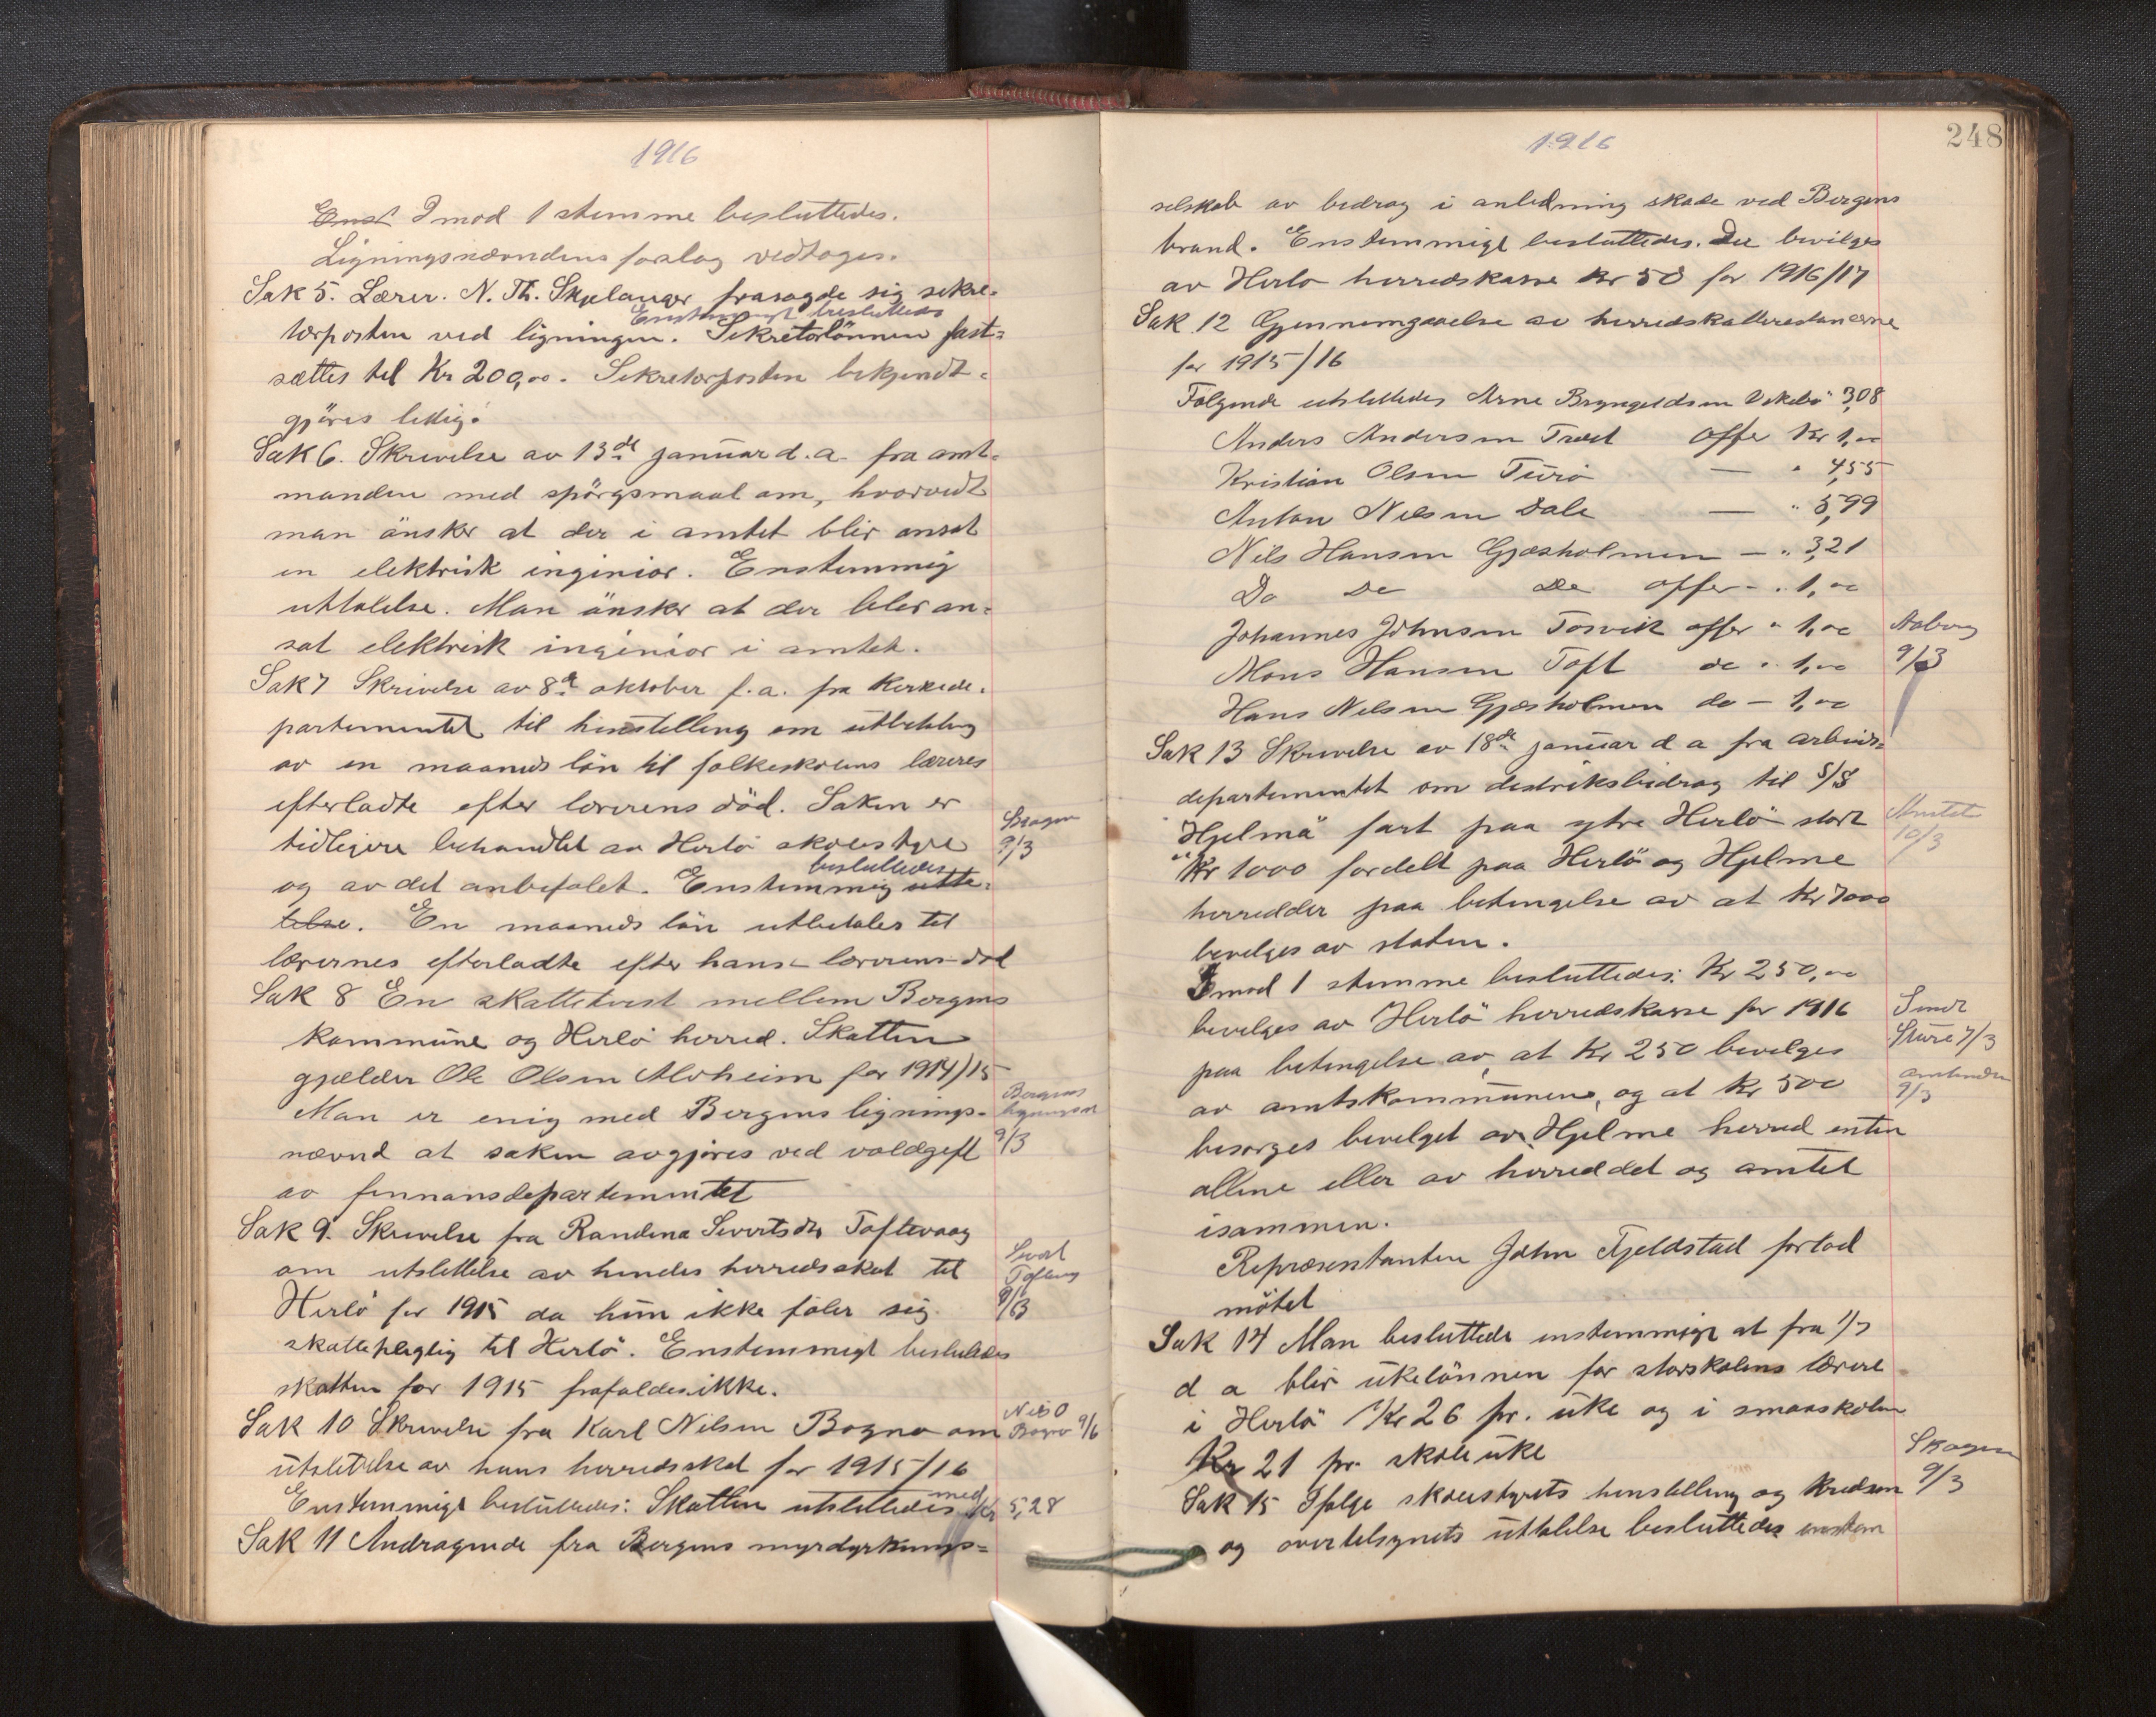 1916
Enst I mod 1 stemme besluttedes.
Ligningsnævndens forslag vedtoges.
Sak 5. Lærer. N. Th. Skjelanger frasagde sig sekre-
Enstemmigt besluttedes
tærposten ved ligningen. Sekretærlönnen fast-
sættes til Kr 200,00. Sekretærposten bekjendt-
gjöres ledig.
Sak 6. Skrivelse av 13de januar d.a. fra amt-
manden med spörgsmaal om, hvorvidt
man önsker at der i amtet blir ansat
en elektrisk inginiör. Enstemmig
uttalelse. Man önsker at der bler an-
sat elektrisk inginiör i amtet.
Sak 7 Skrivelse av 8de oktober f.a. fra Kirkede-
partementet til henstelling om utbetaling
av en maaneds lön til folkeskolens læreres
efterladte efter lærerens död. Saken er
tidligere behandlet av Herlö skolestyre
Skagen
9/3
besluttedes
og av det anbefalet. Enstemmig utta-
lelse. En maaneds lön utbetales til
lærernes efterladte efter hans lærerens död
Sak 8 En skattetvist mellem Bergens
kommune og Herlö herred. Skatten
gjælder Ole Olsen Alvheim for 1914/15
Man er enig med Bergens lignings-
Bergens
9/3
nævnd at saken avgjöres ved voldgift
av finnansdepartementet
Sak 9. Skrivelse fra Randina Sivertsdtr Toftevaag
om utslettelse av hendes herredsskat til
Herlö for 1915 da hun ikke föler sig
9/3
skattepligtig til Herlö. Enstemmigt besluttedes
skatten for 1915 frafaldes ikke.
Sak 10 Skrivelse fra Karl Nilsen Bognö om
Nils O
Bognö 9/6
utslettelse av hans herredsskat for 1915/16
Enstemmigt besluttedes: Skatten utslettedes med Kr 5,28
Sak 11 Andragende fra Bergens myrdyrknings-
1916
248
selskab av bedrag i anledning skade ved Bergens
brand. Enstemmigt besluttedes. Der bevilges
av Herlö herredskasse Kr 50 for 1916/17
Sak 12 Gjennemgaaelse av herredskatterestancerne
for 1915/16
Fölgende utslettedes Arne Bryngeldsen Vikebö 3,08
Anders Andersen Træet offer Kr 1,00
Kristian Olsen Turö — " 4,55
Anton Nilsen Dale — " 5,99
Nils Hansen Gjæsholmen — " 3,21
Do Do Do offer - " 1,00
Johannes Johnsen Torsvik offer " 1,00
Mons Hansen Toft do " 1,00
9/3
Hans Nilsen Gjæsholmen do — 1,00
Sak 13 Skrivelse av 18de januar d a fra arbeids-
departementet om destriktsbidrag til S/S
"Hjelmä" fart paa ytre Herlö stort
Amtet
10/3
Kr 1000 fordelt paa Herlö og Hjelme
herredder paa betingelse av at Kr 7000
bevelges av staten.
I mod 1 stemme besluttedes: Kr 250,00
bevelges av Herlö herredskasse for 1916
Sendt
Sture 7/3
paa betingelse av, at Kr 250 bevelges
av amtskommunen, og at Kr 500
amtmanden
9/3
besörges bevelget av Hjelme herred enten
allene eller av herreddet og amtet
isammen.
Repræsentanten John Fjeldstad forlod
mötet
Sak 14 Man besluttede enstemmigt at fra 1/7
d a blir ukelönnen for storskolens lærere
i Herlö Kr 26 pr. uke og i smaaskolen
Kr 21 pr skoleuke
Skagen
9/3
Sak 15 Ifölge skolestyrets henstelling og Kredsen
og overtelsynets uttalelse besluttedes enstem